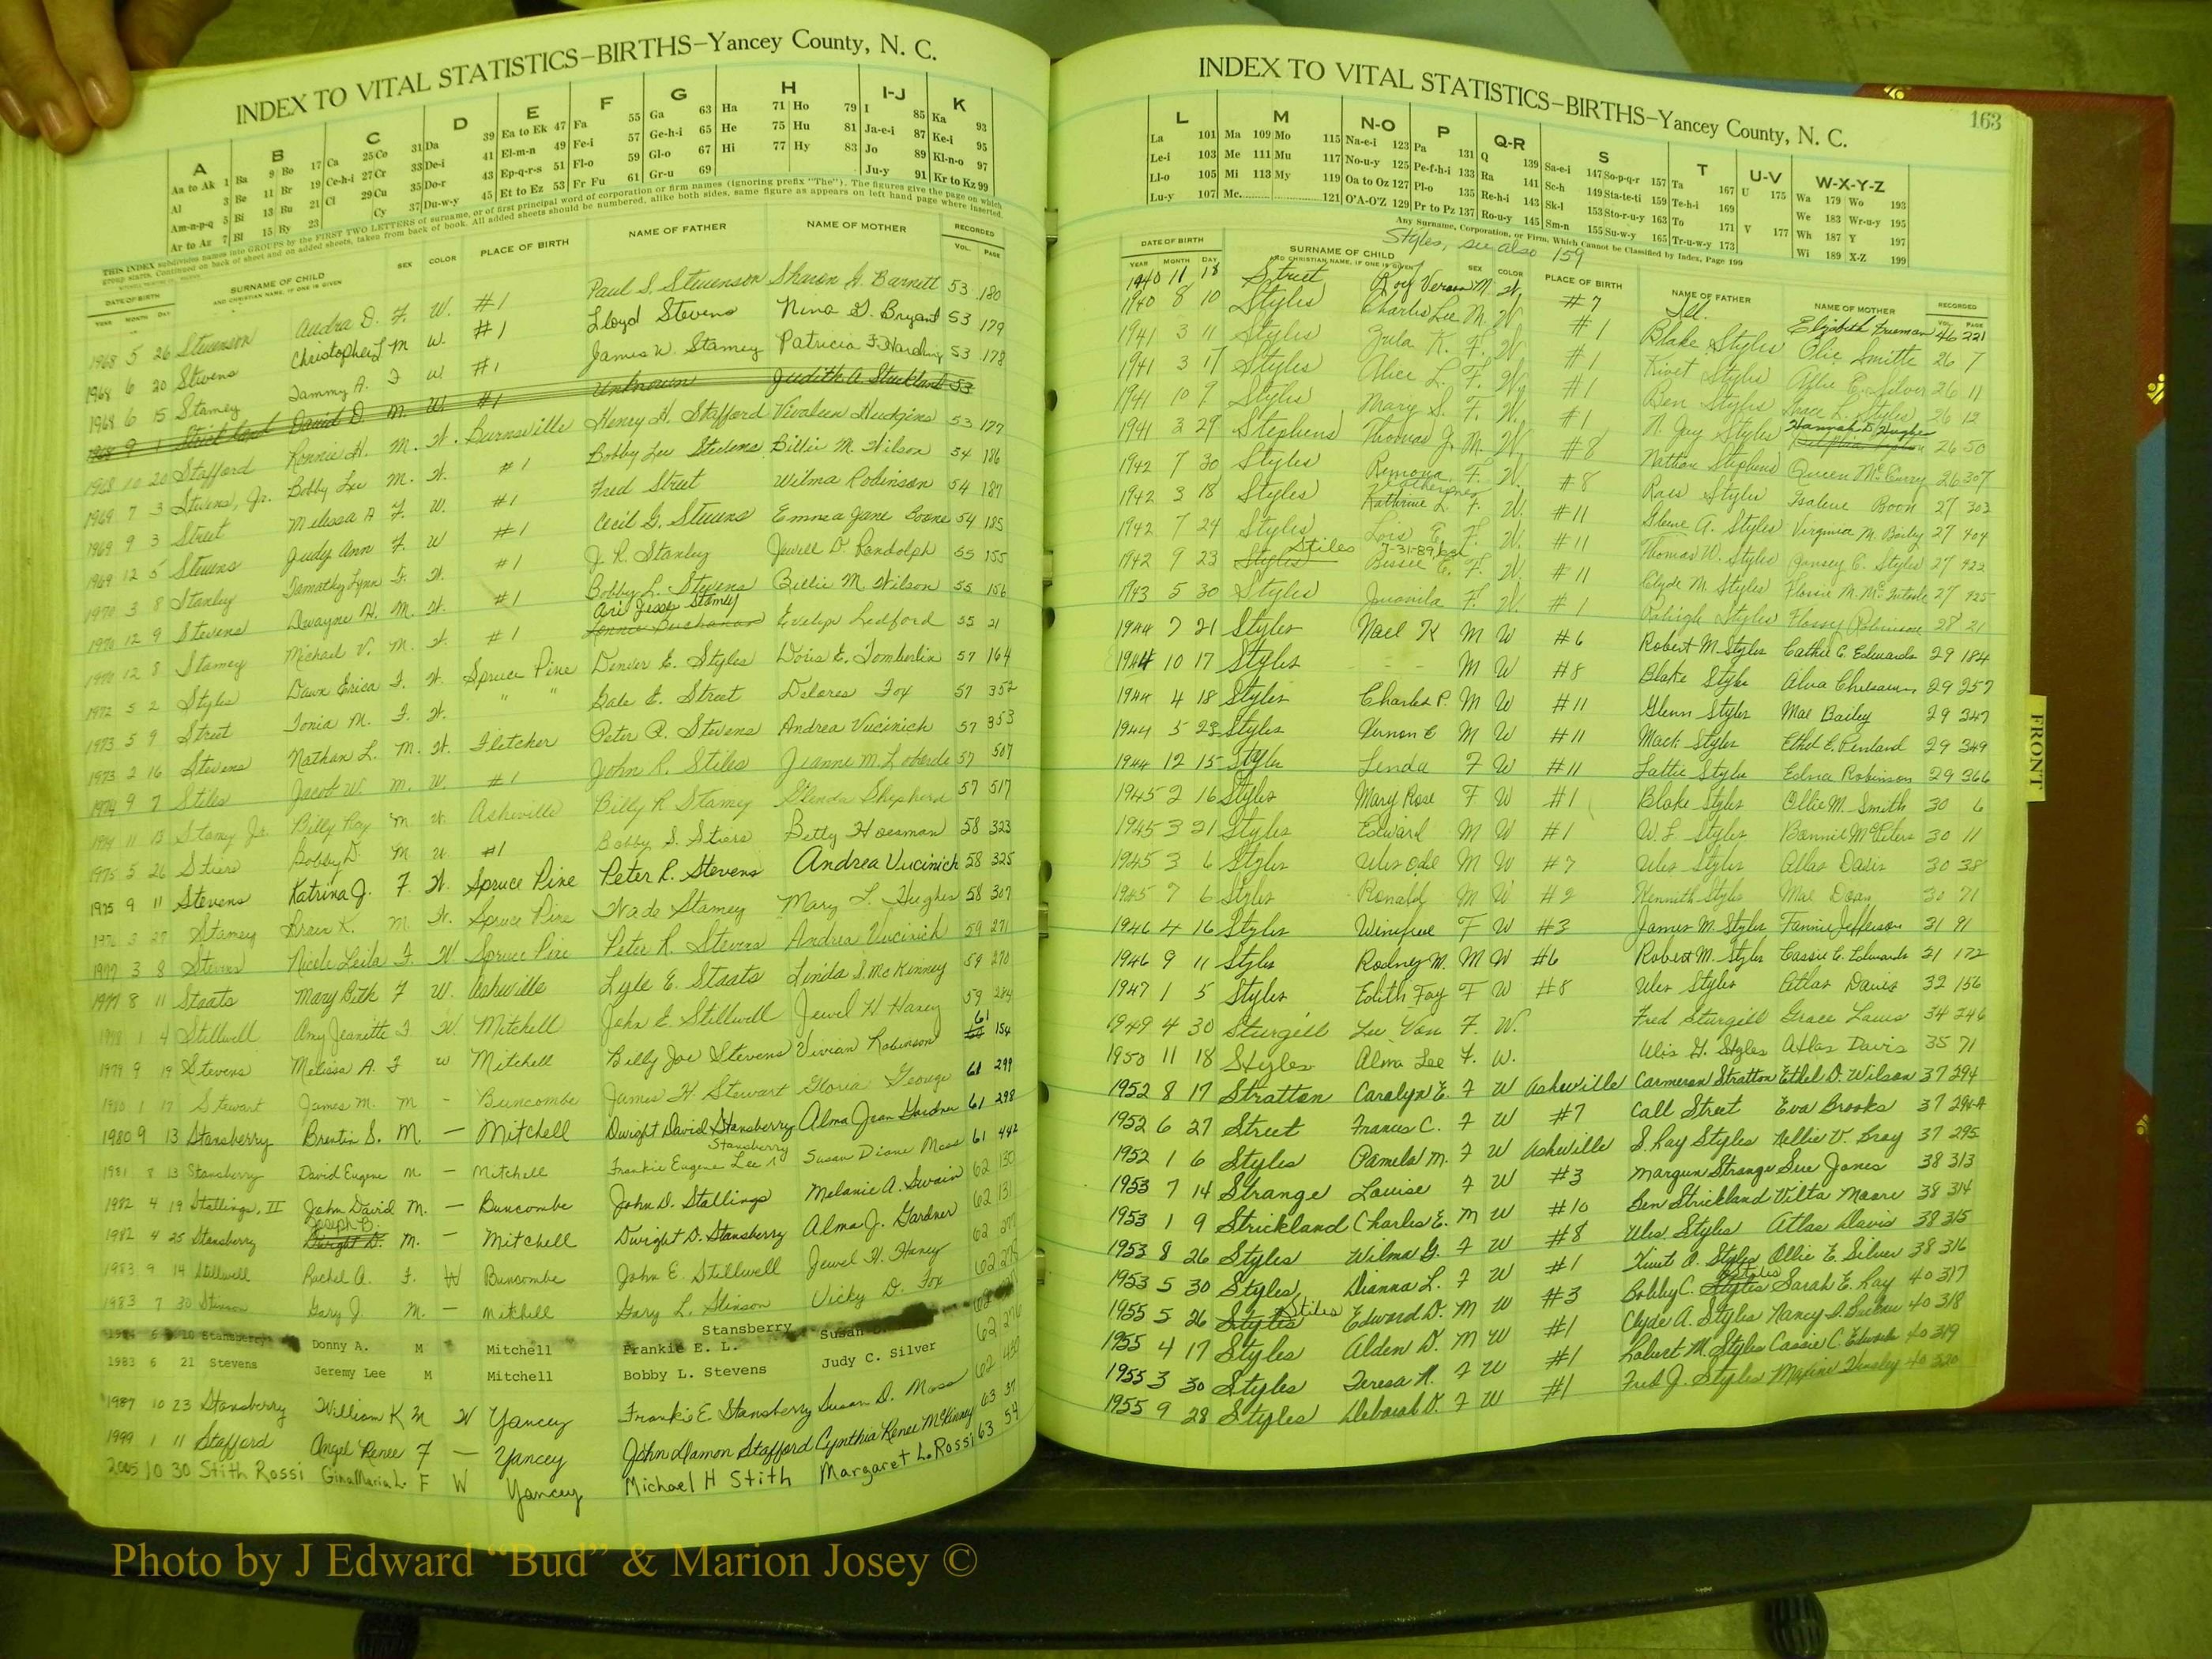 INDEX TO VITAL STATISTICS–BIRTHS–Yancey County, N. C.
A B C D E F G H I-J K
Aa to Ak 1 Ba 9 Bo 17 Ca 25 Co 31 Da 39 Ea to Ek 47 Fa 55 Ga 63 Ha 71 Ho 79 I 85 Ka 93
Al 3 Be 11 Br 19 Ce-h-i 27 Cr 33 De-i 41 El-m-n 49 Fe-i 57 Ge-h-i 65 He 75 Hu 81 Ja-e-i 87 Ke-i 95
Am-n-p-q 5 Bi 13 Bu 21 Cl 29 Cu 35 Do-r 43 Ep-q-r-s 51 Fl-o 59 Gl-o 67 Hi 77 Hy 83 Jo 89 Kl-n-o 97
Ar to Az 7 Bl 15 By 23 Cy 37 Du-w-y 45 Et to Ez 53 Fr Fu 61 Gr-u 69 Ju-y 91 Kr to Kz 99
THIS INDEX subdivides names into GROUPS by the FIRST TWO LETTERS of surname, or of first principal word of corporation or firm names (ignoring prefix "The"). The figures give the page on which
group starts. Continued on back of sheet and on added sheets, taken from back of book. All added sheets should be numbered, alike both sides, same figure as appears on left hand page where inserted.
DATE OF BIRTH SURNAME OF CHILD SEX COLOR PLACE OF BIRTH NAME OF FATHER NAME OF MOTHER RECORDED
YEAR MONTH DAY AND CHRISTIAN NAME, IF ONE IS GIVEN VOL. PAGE
1968 5 26 Stevenson Audra D. F. W. #1 Paul S. Stevenson Sharon H. Barnett 53 180
1968 6 20 Stevens Christopher L M W. #1 Lloyd Stevens Nina G. Bryant 53 179
1968 6 15 Stamey Tammy A. F W #1 James W. Stamey Patricia F Harding 53 178
1968 9 1 Strickland David D. M. W. #1 Unknown Judith A. Strickland 53
1968 10 20 Stafford Ronnie H. M. W. Burnsville Henry H. Stafford Vivaleen Hudgins 53 177
1969 7 3 Stevens, Jr. Bobby Lee M. W. #1 Bobby Lee Stevens Billie M. Wilson 54 186
1969 9 3 Street Melissa A F. W. #1 Fred Street Wilma Robinson 54 187
1969 12 5 Stevens Judy Ann F. W #1 Cecil G. Stevens Emma Jane Boone 54 185
1970 3 8 Stanley Tamathy Lynn F. W. #1 J. R. Stanley Jewell D. Randolph 55 155
1970 12 9 Stevens Dwayne H. M. W. #1 Bobby L. Stevens Billie M. Wilson 55 156
Ari Jesse Stamey
12 8 Stamey Michael V. M. W. #1 Lonnie Buchanan Evelyn Ledford 55 21
1972 5 2 Styles Dawn Erica F. W. Spruce Pine Denver E. Styles Doris E. Tomberlin 57 164
1973 5 9 Street Tonia M. F. W. " " Gale E. Street Delores Fox 57 352
1973 2 16 Stevens Nathan L. M. W. Fletcher Peter R. Stevens Andrea Vucinich 57 353
1974 9 7 Stiles Jacob W. M. W. #1 John R. Stiles Jeanne M. Loberde 57 507
1974 11 13 Stamey Jr. Billy Roy M W. Asheville Billy R Stamey Glenda Shepherd 57 517
1975 5 26 Stiers Bobby D. M W #1 Bobby S. Stiers Betty Hoesman 58 323
1975 9 11 Stevens Katrina J. F. W. Spruce Pine Peter R. Stevens Andrea Vucinich 58 325
Stamey K. M. W. Spruce Pine Wade Stamey Mary L. Hughes 58 307
1977 3 8 Stevens Nicole Leila F. W Spruce Pine Peter R. Stevens Andrea Vucinich 59 271
1977 8 11 Staats Mary Beth F W. Asheville Lyle E. Staats Linda S. McKinney 59 270
1 4 Stillwell Amy Jeanette F W. Mitchell John E. Stillwell Jewel H Haney 59 284
61
1979 9 19 Stevens Melissa A. F W Mitchell Billy Joe Stevens Vivian Robinson 154
1980 1 17 Stewart James M. M - Buncombe James H. Stewart Gloria George 61 299
1980 9 13 Stansberry Brentin S. M. – Mitchell Dwight David Stansberry Alma Jean Gardner 61 298
Stansberry
1981 8 13 Stansberry David Eugene M. – Mitchell Frankie Eugene Lee Susan Diane Moss 61 442
1982 4 19 Stallings, II John David M. – Buncombe John D. Stallings Melanie A. Swain 62 130
Joseph B.
1982 4 25 Stansberry Dwight D. M. – Mitchell Dwight D. Stansberry Alma J. Gardner 62 131
1983 9 14 Stillwell Rachel A. F. W Buncombe John E. Stillwell Jewel H. Haney 62 277
1983 7 30 Stinson Gary J. M. – Mitchell Gary L. Stinson Vicky D. Fox 62 275
Stansberry
10 Stansberry Donny A. M Mitchell Frankie E. L. Susan
1983 6 21 Stevens Jeremy Lee M Mitchell Bobby L. Stevens Judy C. Silver 62 276
1987 10 23 Stansberry William K M W Yancey Frankie E Stansberry Susan D. Moss 62
1999 1 11 Stafford Angel Renee F – Yancey John Damon Stafford Cynthia Renee McKinney 63 37
2005 10 30 Stith Rossi Gina Maria L. F W Yancey Michael H Stith Margaret L. Rossi 63 54
163
INDEX TO VITAL STATISTICS–BIRTHS–Yancey County, N. C.
L M N-O P Q-R S T U-V W-X-Y-Z
La 101 Ma 109 Mo 115 Na-e-i 123 Pa 131 Q 139 Sa-e-i 147 So-p-q-r 157 Ta 167 U 175 Wa 179 Wo 193
Le-i 103 Me 111 Mu 117 No-u-y 125 Pe-f-h-i 133 Ra 141 Sc-h 149 Sta-te-ti 159 Te-h-i 169 We 183 Wr-u-y 195
Ll-o 105 Mi 113 My 119 Oa to Oz 127 Pl-o 135 Re-h-i 143 Sk-l 153 Sto-r-u-y 163 To 171 V 177 Wh 187 Y 197
Lu-y 107 Mc 121 O'A-O'Z 129 Pr to Pz 137 Ro-u-y 145 Sm-n 155 Su-w-y 165 Tr-u-w-y 173 Wi 189 X-Z 199
Any Surname, Corporation, or Firm, Which Cannot be Classified by Index, Page 199
Styles, see also 159
DATE OF BIRTH SURNAME OF CHILD SEX COLOR PLACE OF BIRTH NAME OF FATHER NAME OF MOTHER RECORDED
YEAR MONTH DAY AND CHRISTIAN NAME, IF ONE IS GIVEN VOL. PAGE
1940 11 18 Street Roy Vernon M. W. #7 Ill. Elizabeth Freeman 46 221
1940 8 10 Styles Charles Lee M. W #1 Blake Styles Olie Smith 26 7
1941 3 11 Styles Zula K. F. W #1 Kivet Styles Allie E. Silver 26 11
1941 3 17 Styles Alice L. F. W. #1 Ben Styles Grace L. Styles 26 12
1941 10 9 Styles Mary S. F. W. #1 N. Guy Styles Hannah D. Hughes 26 50
1941 3 29 Stephens Thomas J. M. W. #8 Nathan Stephens Queen McCurry 26 307
1942 7 30 Styles Remona F. W. #8 Styles Isalene Boon 27 303
1942 3 18 Styles Katherine L. F. W. #11 A. Styles Virginia M. Bailey 27 404
1942 7 24 Styles Lois E. F. W. #11 Thomas W. Styles Pansey C. Styles 27 422
Stiles 7-31-89
1942 9 23 Styles Bessie E. F. W #11 Clyde M. Styles Flossie M. McIntosh 27 425
1943 5 30 Styles Juanita F. W. #1 Raleigh Styles Flossy Robinson 28 21
1944 7 21 Styles Nael K M W #6 Robert M. Styles Cathie C. Edwards 29 184
1944 10 17 Styles - - - M W #8 Blake Style Alva 29 257
1944 4 18 Styles Charles P. M W #11 Glenn Styles Mae Bailey 29 347
1944 5 23 Styles Vernon E M W #11 Mack Styles Ethel E. Penland 29 349
1944 12 15 Styles Linda F W #11 Lattie Style Edna Robinson 29 366
1945 2 16 Styles Mary Rose F W #1 Blake Styles Ollie M. Smith 30 6
1945 3 21 Styles Edward M W #1 W. L. Styles Bonnie McPeters 30 11
1945 3 6 Styles Ules Odel M W #7 Ules Styles Atlas Davis 30 38
1945 7 6 Styles Ronald M W #2 Kenneth Styles Mae Doan 30 71
1946 4 16 Styles Winifree F W #3 James M. Styles Fannie Jefferson 31 91
1946 9 11 Styles Rodney M. M W #6 Robert M. Styles Cassie C. Edwards 31 172
1947 1 5 Styles Edith Fay F W #8 Ules Styles Atlas Davis 32 156
1949 4 30 Sturgill Lee Von F. W. Fred Sturgill Grace Laws 34 246
1950 11 18 Styles Alma Lee F. W. Ulis H. Styles Atlas Davis 35 71
1952 8 17 Stratton Carolyn E. F W Asheville Carmeron Stratton Ethel D. Wilson 37 294
1952 6 27 Street Frances C. F W #7 Call Street Eva Brooks 37 294A
1952 1 6 Styles Pamela M. F W Asheville S. Ray Styles Nellie V. Gray 37 295
1953 7 14 Strange Louise F W #3 Margun Strange Sue Jones 38 313
1953 1 9 Strickland Charles E. M W #10 Ben Strickland Vilta Moore 38 314
1953 8 26 Styles Wilma G. F W #8 Ules Styles Atlas Davis 38 315
1953 5 30 Styles Dianna L. F W #1 Kivet O. Styles Ollie E. Silver 38 316
Stiles Stiles
1955 5 26 Styles Edward D. M W #3 Bobby C. Styles Sarah E. Ray 40 317
1955 4 17 Styles Alden D. M W #1 Clyde A. Styles Nancy 40 318
1955 3 30 Styles Teresa K. F W #1 Robert M. Styles Cassie C. Edwards 40 319
1955 9 28 Styles Deborah D. F W #1 Fred J. Styles Maxine Hensley 40 320
FRONT
Photo by J Edward “Bud” & Marion Josey ©